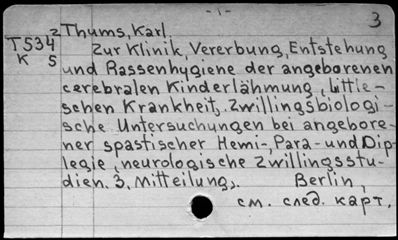 - 1 -
3
2 Thums, Karl
T534
K 5
Zur Klinik, Vererbung, Entstehung
und Rassenhygiene der angeborenen
cerebralen Kinderlähmung, Little-
schen Krankheit. Zwillingsbiologi-
sche Untersuchungen bei angebore-
ner spastischer Hemi-, Para- und Dip-
legie, neurologische Zwillingsstu-
dien. 3. Mitteilung,. Berlin,
см. след. карт.